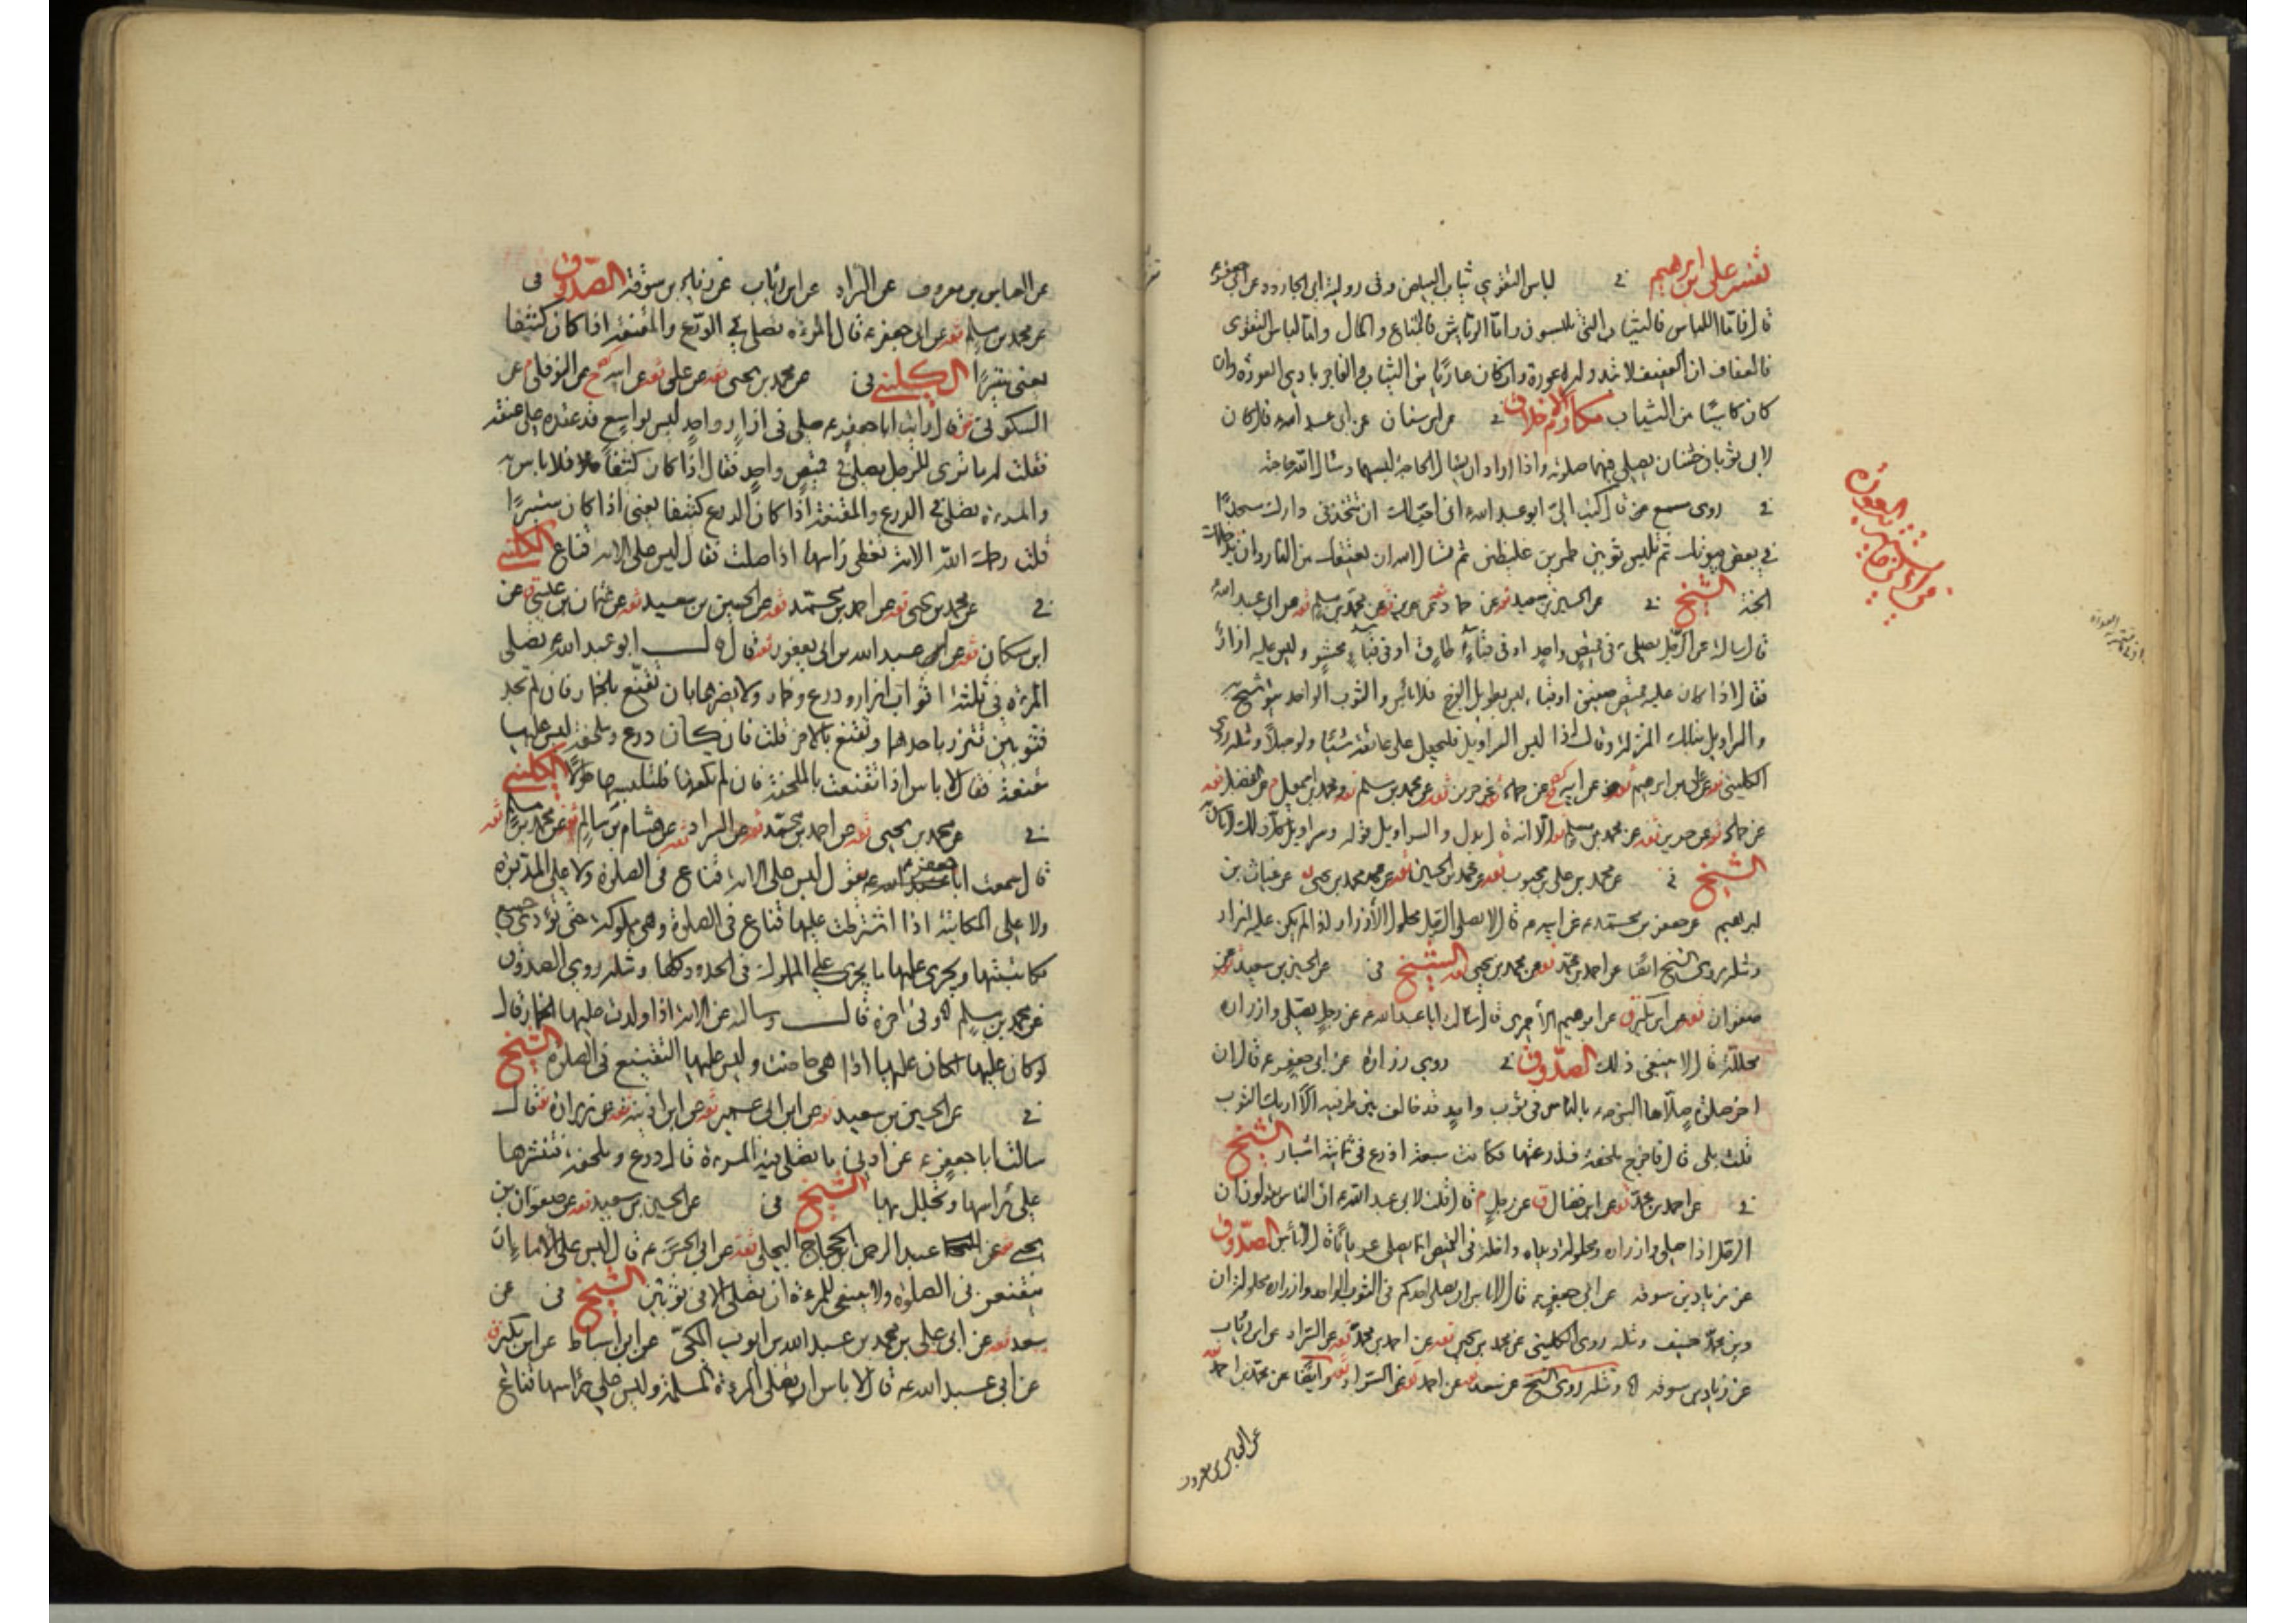 تفسير علي بن ابرهيم في لباس التقوي ثياب البياض وفي رواية ابي الجارود عن ابي جعفر ع
قال فاما اللباس فالثياب التي تلبسون واما الرياش فالمتاع والمال واما لباس التقوى
فالعفاف ان العفيف لا تبدو له عورة وان كان عاريا من الثياب والفاجر بادي العورة وان
كان كاسيا من الثياب مكارم الاخلاق في عن ابن سنان عن ابي عبد الله ع قال كان
لابي ثوبان خشنان يصلي فيهما صلوته واذا اراد ان يسال الحاجة لبسهما وسال الله حاجته
في روى مسمع قال كتب الي ابو عبد الله ع اني احب لك ان تتخذ في دارك مسجدا
في بعض بيوتك ثم تلبس ثوبين طمرين غليظين ثم تسال الله ان يعتقك من النار وان يدخلك
الجنة الشيخ في عن الحسين بن سعيد ثقه عن حماد ثقه عن حريز ثقه عن محمد بن مسلم ثقه عن ابي عبد الله ع
قال سالته عن الرجل يصلي في قميص واحد او في قباء طاق او في قباء محشو وليس عليه ازار
فقال اذا كان عليه قميص صفيق او قباء ليس بطويل الفرج فلا باس والثوب الواحد يتوشح به
والسراويل بتلك المنزلة وقال اذا لبس السراويل فليجعل على عاتقه شيئا ولو حبلا ومثله روى
الكليني عن علي بن ابرهيم ثقه عن ابيه عن حماد ثقه عن حريز ثقه عن محمد بن مسلم ثقه ومحمد بن اسمعيل م عن الفضل ثقه
عن حماد ثقه عن حريز ثقه عن محمد بن مسلم ثقه الا انه
الشيخ في عن محمد بن علي بن محبوب ثقه عن محمد بن الحسين ثقه عن محمد بن يحيى عن غياث بن
ابراهيم عن جعفر بن محمد ع عن ابيه ع قال لا يصلي الرجل محلول الازرار اذا لم يكن عليه ازار
ومثله روى الشيخ ايضا عن احمد بن محمد ثقه عن محمد بن يحيى الشيخ في عن الحسين بن سعيد ثقه عن
صفوان ثقه عن ابن بكير ق عن ابرهيم الاحمري قال سالت ابا عبد الله ع عن رجل يصلي وازراره
محللة قال لا ينبغي ذلك الصدوق في روى زرارة عن ابي جعفر ع قال ان
اخر صلوة صلاها النبي ص بالناس في ثوب واحد قد خالف بين طرفيه الا اريك الثوب
قلت بلى قال فاخرج ملحفة فذرعتها فكانت سبعة اذرع في ثمانية اشبار الشيخ
في عن احمد بن محمد ثقه عن ابن فضال ق عن رجل م قال قلت لابي عبد الله ع ان الناس يقولون ان
الرجل اذا صلى وازراره محلولة ويداه داخلة في القميص انما يصلي عريانا قال لا باس الصدوق
عن زياد بن سوقه عن ابي جعفر ع قال لا باس ان يصلي احدكم في الثوب الواحد وازراره محلولة ان
دين محمد حنيف ومثله روى الكليني عن محمد بن يحيى ثقه عن احمد بن محمد ثقه عن السراد عن ابن رئاب
عن زياد بن سوقه ومثله روى الشيخ عن سعد عن احمد ثقه عن السراد ثقه وايضا عن محمد بن احمد ثقه
عن العباس بن معروف
عن العباس بن معروف عن السراد عن ابن رئاب عن زياد بن سوقة الصدوق في
عن محمد بن مسلم ثقه عن ابي جعفر ع قال المرءة تصلي في الدرع والمقنعة اذا كان كثيفا
يعني ستيرا الكليني في عن محمد بن يحيى ثقه عن علي ثقه عن ابيه عن النوفلي م عن
السكوني قال رايت ابا جعفر ع صلى في ازار واحد ليس بواسع قد عقده على عنقه
فقلت له ما ترى للرجل يصلي في قميص واحد فقال اذا كان كثيفا فلا باس به
والمرءة تصلي في الدرع والمقنعة اذا كان الدرع كثيفا يعني اذا كان ستيرا
قلت رحمك الله الامة تغطي راسها اذا صلت فقال ليس على الامة قناع الكليني
في عن محمد بن يحيى ثقه عن احمد بن محمد ثقه عن الحسين بن سعيد ثقه عن عثمان بن عيسى عن
ابن مسكان ثقه عن عبد الله بن ابي يعفور ثقه قال قال ابو عبد الله ع تصلي
المرءة في ثلثة اثواب ازار ودرع وخمار ولا يضرها بان تقنع بالخمار فان لم تجد
فثوبين تتزر باحدهما وتقنع بالاخر قلت فان كان درع وملحفة ليس عليها
مقنعة فقال لا باس اذا تقنعت بالملحفة فان لم تكفها فلتلبسها طولا الكليني
في عن محمد بن يحيى ثقه عن احمد بن محمد ثقه عن السراد ثقه عن هشام بن سالم ثقه عن محمد بن مسلم ثقه
قال سمعت ابا جعفر ع يقول ليس على الامة قناع في الصلوة ولا على المدبرة
ولا على المكاتبة اذا اشترطت عليها قناع في الصلوة وهي مملوكة حتى تؤدي جميع
مكاتبتها ويجري عليها ما يجري على المملوك في الحدود كلها ومثله روى الصدوق
عن محمد بن مسلم وفي اخره قال وسالته عن الامة اذا ولدت عليها الخمار قال
لو كان عليها لكان عليها اذا هي حاضت وليس عليها التقنيع في الصلوة الشيخ
في عن الحسين بن سعيد ثقه عن ابن ابي عمير ثقه عن ابن اذينه ثقه عن زرارة ثقه قال
سالت ابا جعفر ع عن ادنى ما تصلي فيه المرءة قال درع وملحفة فتنشرها
على راسها وتجلل بها الشيخ في عن الحسين بن سعيد ثقه عن صفوان بن
يحيى عن عبد الرحمن بن الحجاج البجلي ثقه عن ابي الحسن ع قال ليس على الاماء ان
يتقنعن في الصلوة ولا ينبغي للمرءة ان تصلي الا في ثوبين الشيخ في عن
سعد ثقه عن ابي علي بن محمد بن عبد الله بن ابي ايوب المكي عن ابن اسباط عن ابن بكير ق
عن ابي عبد الله ع قال لا باس ان تصلي المرءة المسلمة وليس على راسها قناع